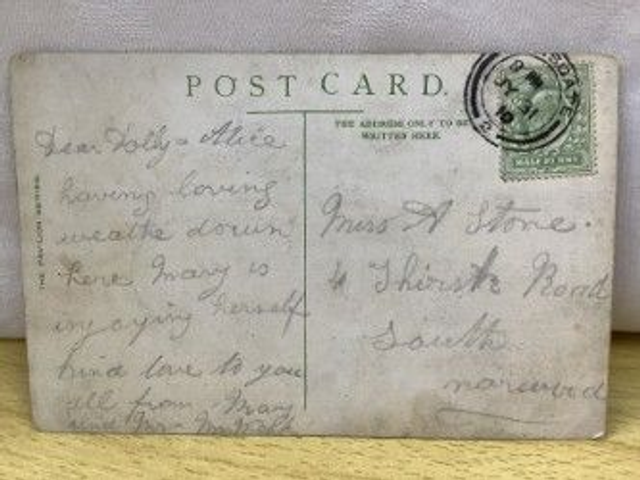 POST CARD.
THE ADDRESS ONLY TO BE
WRITTEN HERE.
THE PAVILION SERIES.
HALF PENNY
Dear Dolly & Alice
having loving
weathe down
here Mary is
injoying herself
kind love to you
all from Mary
and Mr
Miss A Stone.
4 Thirsk Road
South
norwood